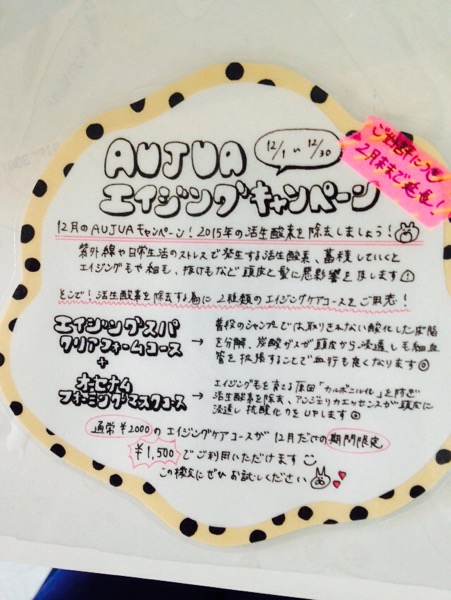 AUJUA
12/1〜12/30
ご好評につき
2月末まで延長!
エイジングキャンペーン
12月のAUJUAキャンペーン!2015年の活生酸素を除去しましょう!
紫外線や日常生活のストレスで発生する活生酸素、蓄積していくと
エイジング毛や細毛、抜け毛など頭皮と髪に悪影響を及ぼします!
そこで!活生酸素を除去する為に2種類のエイジングケアコースをご用意!
エイジングスパ
クリアフォームコース
→普段のシャンプーでは取りきれない酸化した皮脂
を分解、炭酸ガスが頭皮から浸透し毛細血
管を拡張することで血行も良くなります
+
オーセナム
フォーミングマスクコース
→エイジング毛を育てる原因「カルボニル化」を防ぎ
活生酸素を除去、アンジェリカエッセンスが頭皮に
浸透し抗酸化力をUPします
通常¥2000のエイジングケアコースが12月だけの期間限定
¥1,500でご利用いただけます
この機会にぜひお試しください